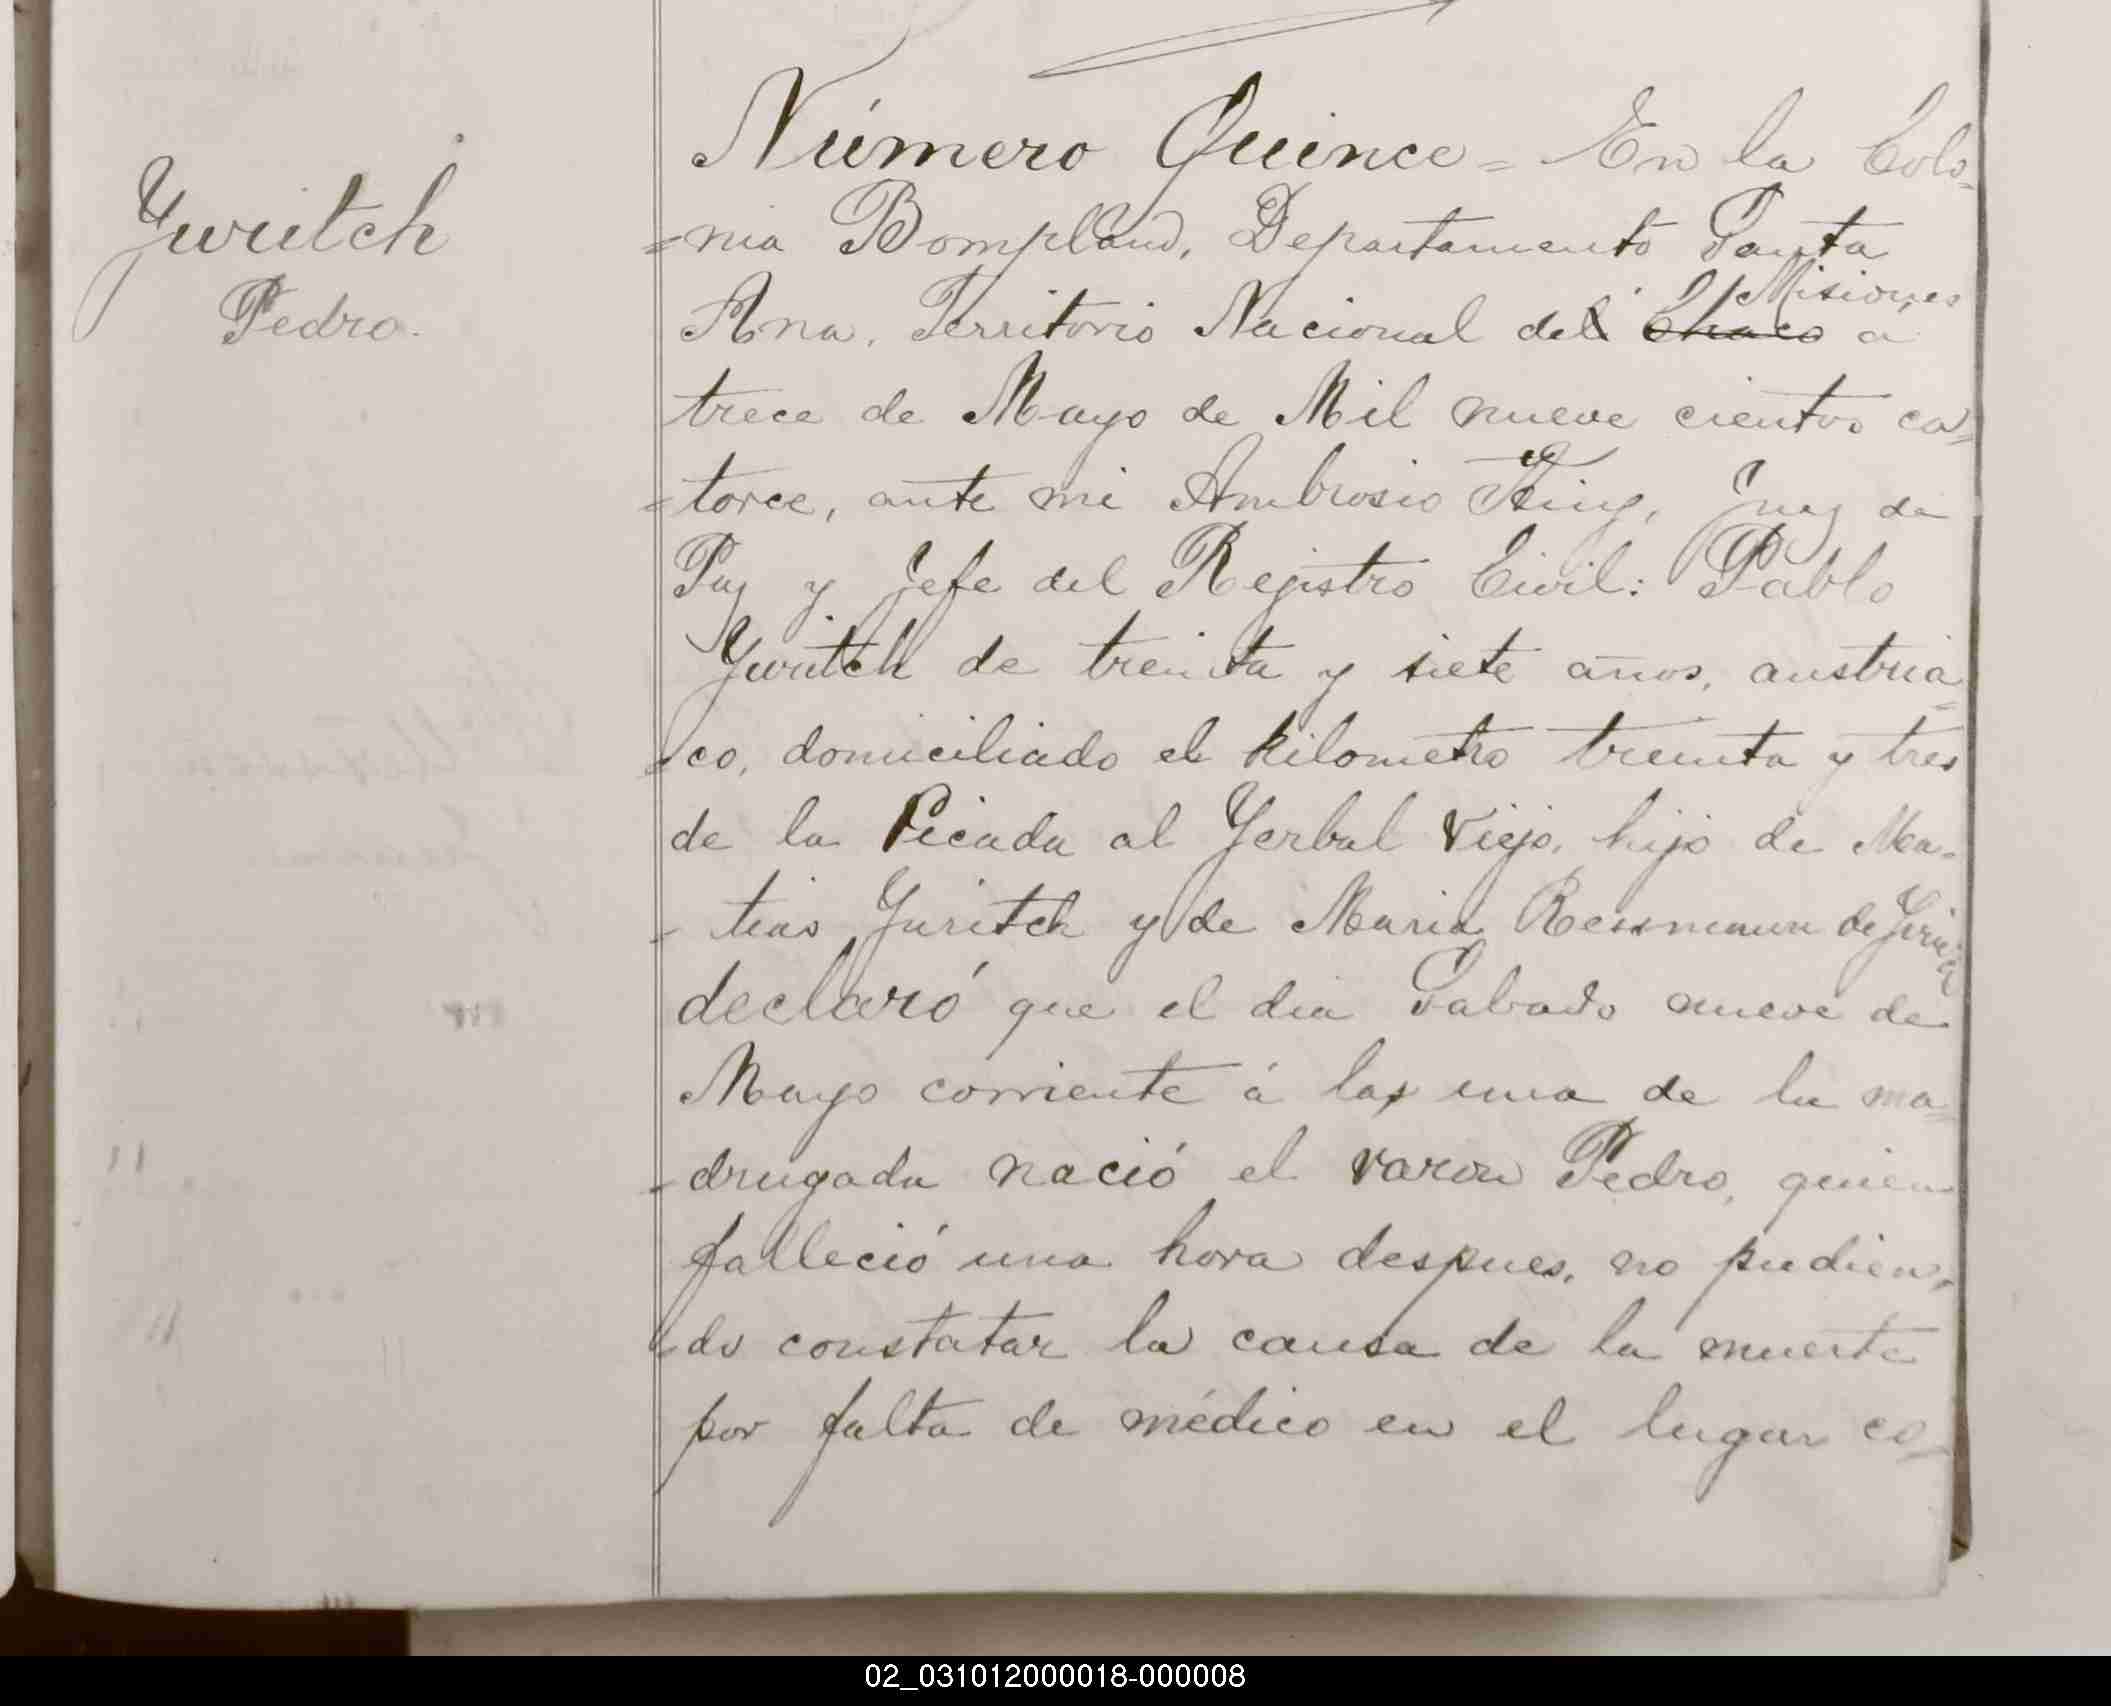 Yuritch
Pedro.
Número Quince = En la Colo-
=nia Bompland, Departamento Santa
Misiones
Ana, Territorio Nacional del Chaco a
trece de Mayo de Mil nueve cientos ca=
=torce, ante mi Ambrosio Juez de
Paz y Jefe del Rejistro Civil: Pablo
Yuritch de treinta y siete años, austria=
=co, domiciliado el kilometro treinta y tres
de la Picada al Yerbal Viejo, hijo de Ma-
- tias Yuritch y de Maria de
declaró que el dia Sabado nueve de
Mayo corriente á las una de la ma=
-drugada nació el varon Pedro, quien
falleció una hora despues, no pudien-
do constatar la causa de la muerte
por falta de médico en el lugar co-
02_031012000018-000008